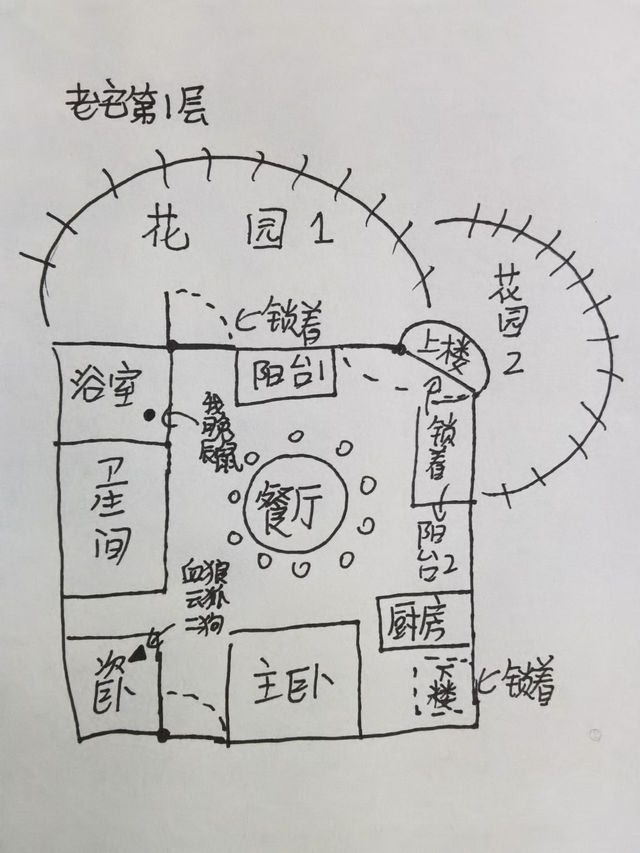 老宅第1层
花 园 1
花园2
锁着
阳台1
上楼
浴室
我
晚
辰鼠
锁着
卫生间
餐厅
阳台2
血狼
云狐
二狗
厨房
次卧
主卧
下楼
锁着